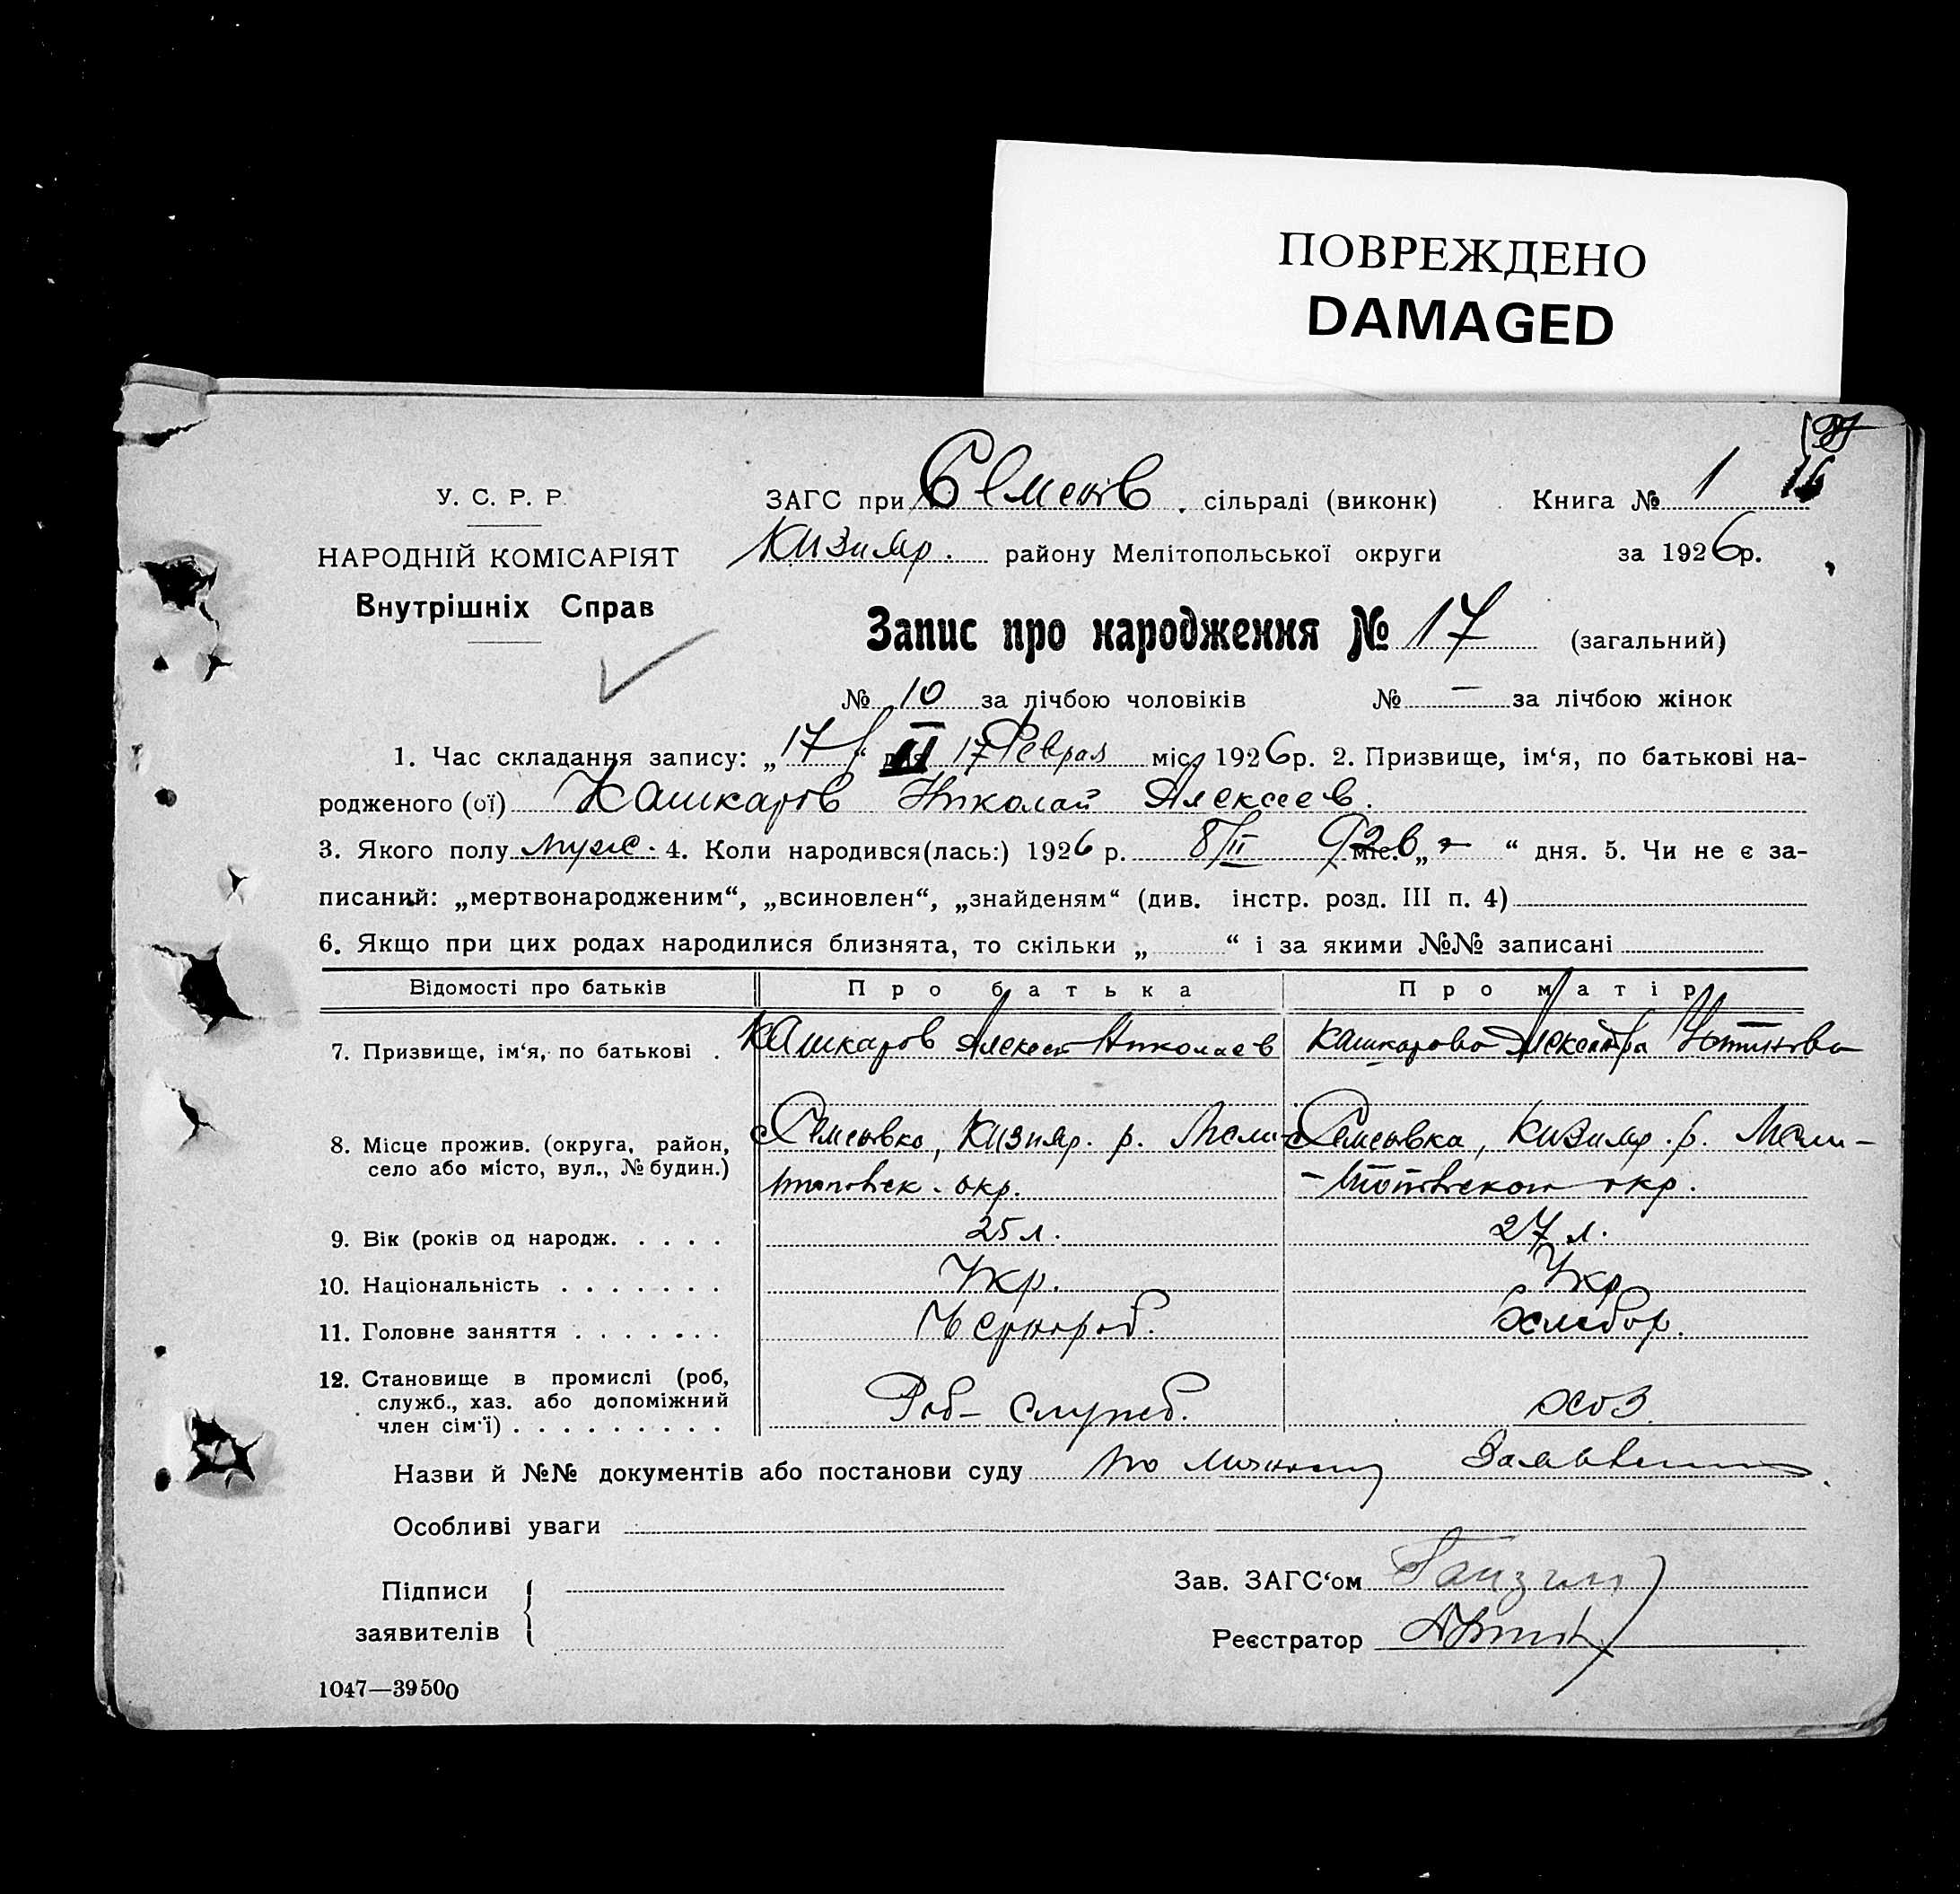 ПОВРЕЖДЕНО
DAMAGED
16
У. С. Р. Р.
НАРОДНІЙ КОМІСАРІЯТ
Внутрішніх Справ
ЗАГС при Семенов. сільраді (виконк) Книга № 1
Кизияр. району Мелітопольської округи за 1926р.
Запис про народження № 17 (загальний)
№ 10 за лічбою чоловіків № — за лічбою жінок
1. Час складання запису: „17“ дня 17 Феврал міс. 1926р. 2. Призвище, ім‘я, по батькові на-
родженого (ої) Кашкаров Николай Алексеев.
3. Якого полу муж. 4. Коли народився(лась:) 1926 р. 8/II міс. „ “ дня. 5. Чи не є за-
писаний: „мертвонародженим“, „всиновлен“, „знайденям“ (див. інстр. розд. III п. 4)
6. Якщо при цих родах народилися близнята, то скільки „ “ і за якими №№ записані
Відомості про батьків Про батька Про матір
7. Призвище, ім‘я, по батькові . Кашкаров Алексей Николаев Кашкарова Александра
8. Місце прожив. (округа, район, село або місто, вул., № будин.) с Семеновка, Кизияр. р. Мели- с Семеновка, Кизияр. р. Мели-
топольск. окр. -топольской окр.
9. Вік (років од народж. . . . . 25 л. 27 л.
10. Національність . . . . . . . Укр. Укр
11. Головне заняття . . . . . . . Чернораб. Хлебор.
12. Становище в промислі (роб, служб., хаз. або допоміжний член сім‘ї) . . . . . . . . . Роб- служеб. хоз.
Назви й №№ документів або постанови суду по личному
Особливі уваги
Підписи
заявителів
Зав. ЗАГС‘ом
Реєстратор
1047—39500